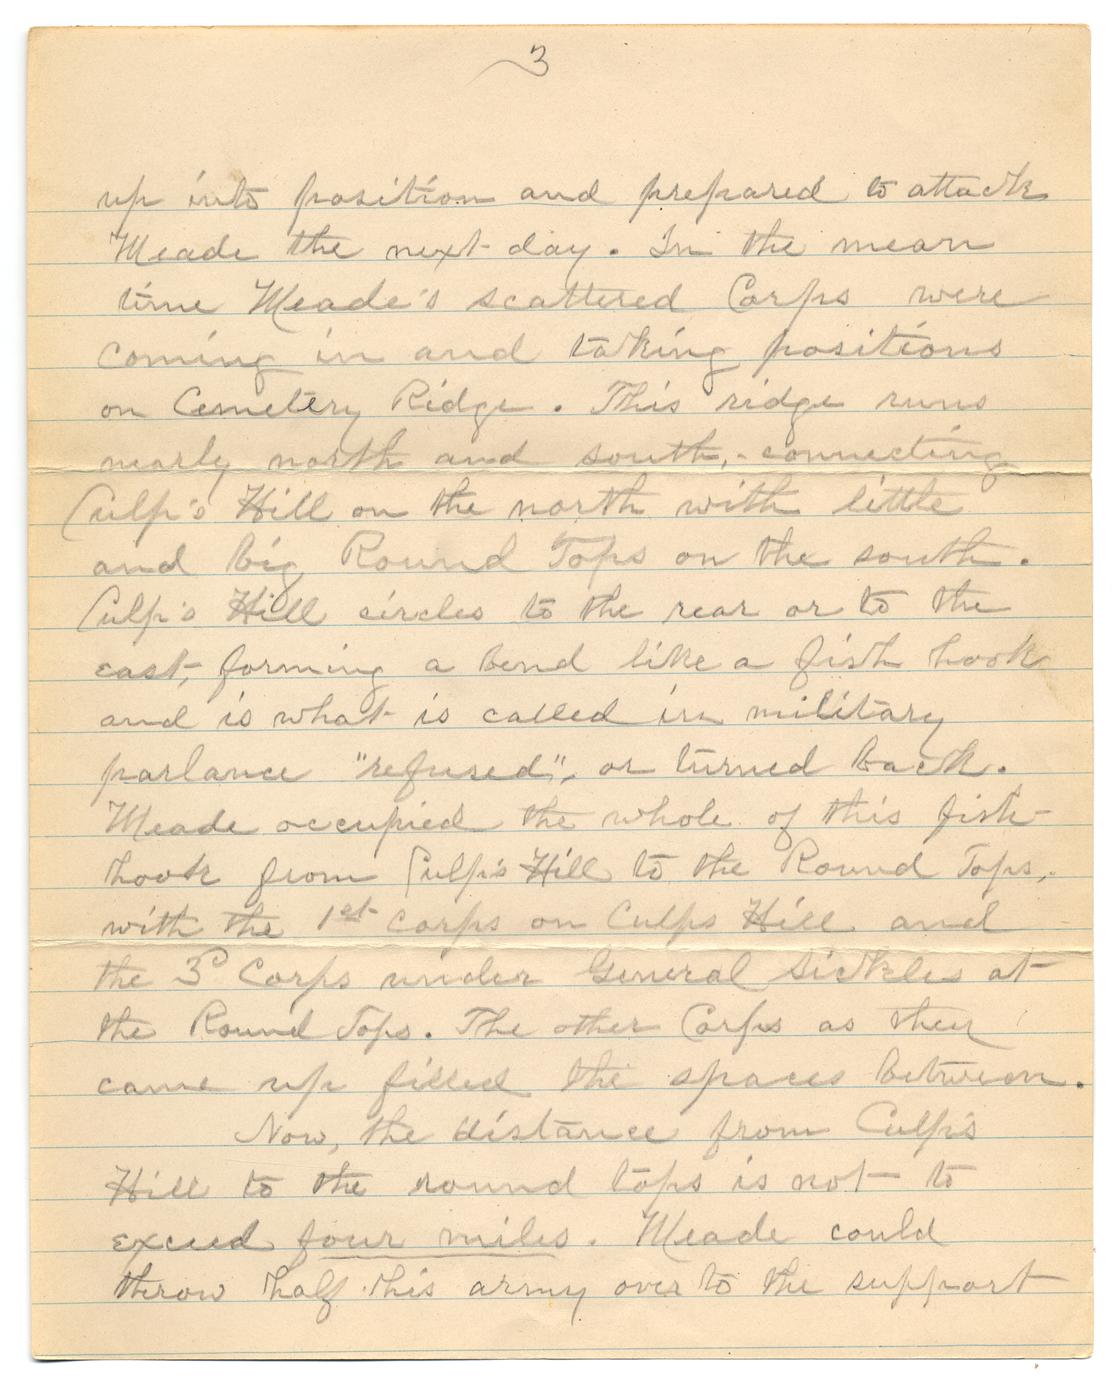 3
up into position and prepared to attack
Meade the next day. In the mean
time Meade's scattered Corps were
coming in and taking positions
on Cemetery Ridge. This ridge runs
nearly north and south, - connecting
Culp's Hill on the north with little
and big Round Tops on the south.
Culp's Hill circles to the rear or to the
east, forming a bend like a fish hook
and is what is called in military
parlance "refused", or turned back.
Meade occupied the whole of this fish-
hook from Culp's Hill to the Round Tops,
with the 1st corps on Culps Hill and
the 3d Corps under General Sickles at
the Round Tops. The other Corps as they
came up filled the spaces between.
Now, the distance from Culp's
Hill to the round tops is not to
exceed four miles. Meade could
throw half this army over to the support